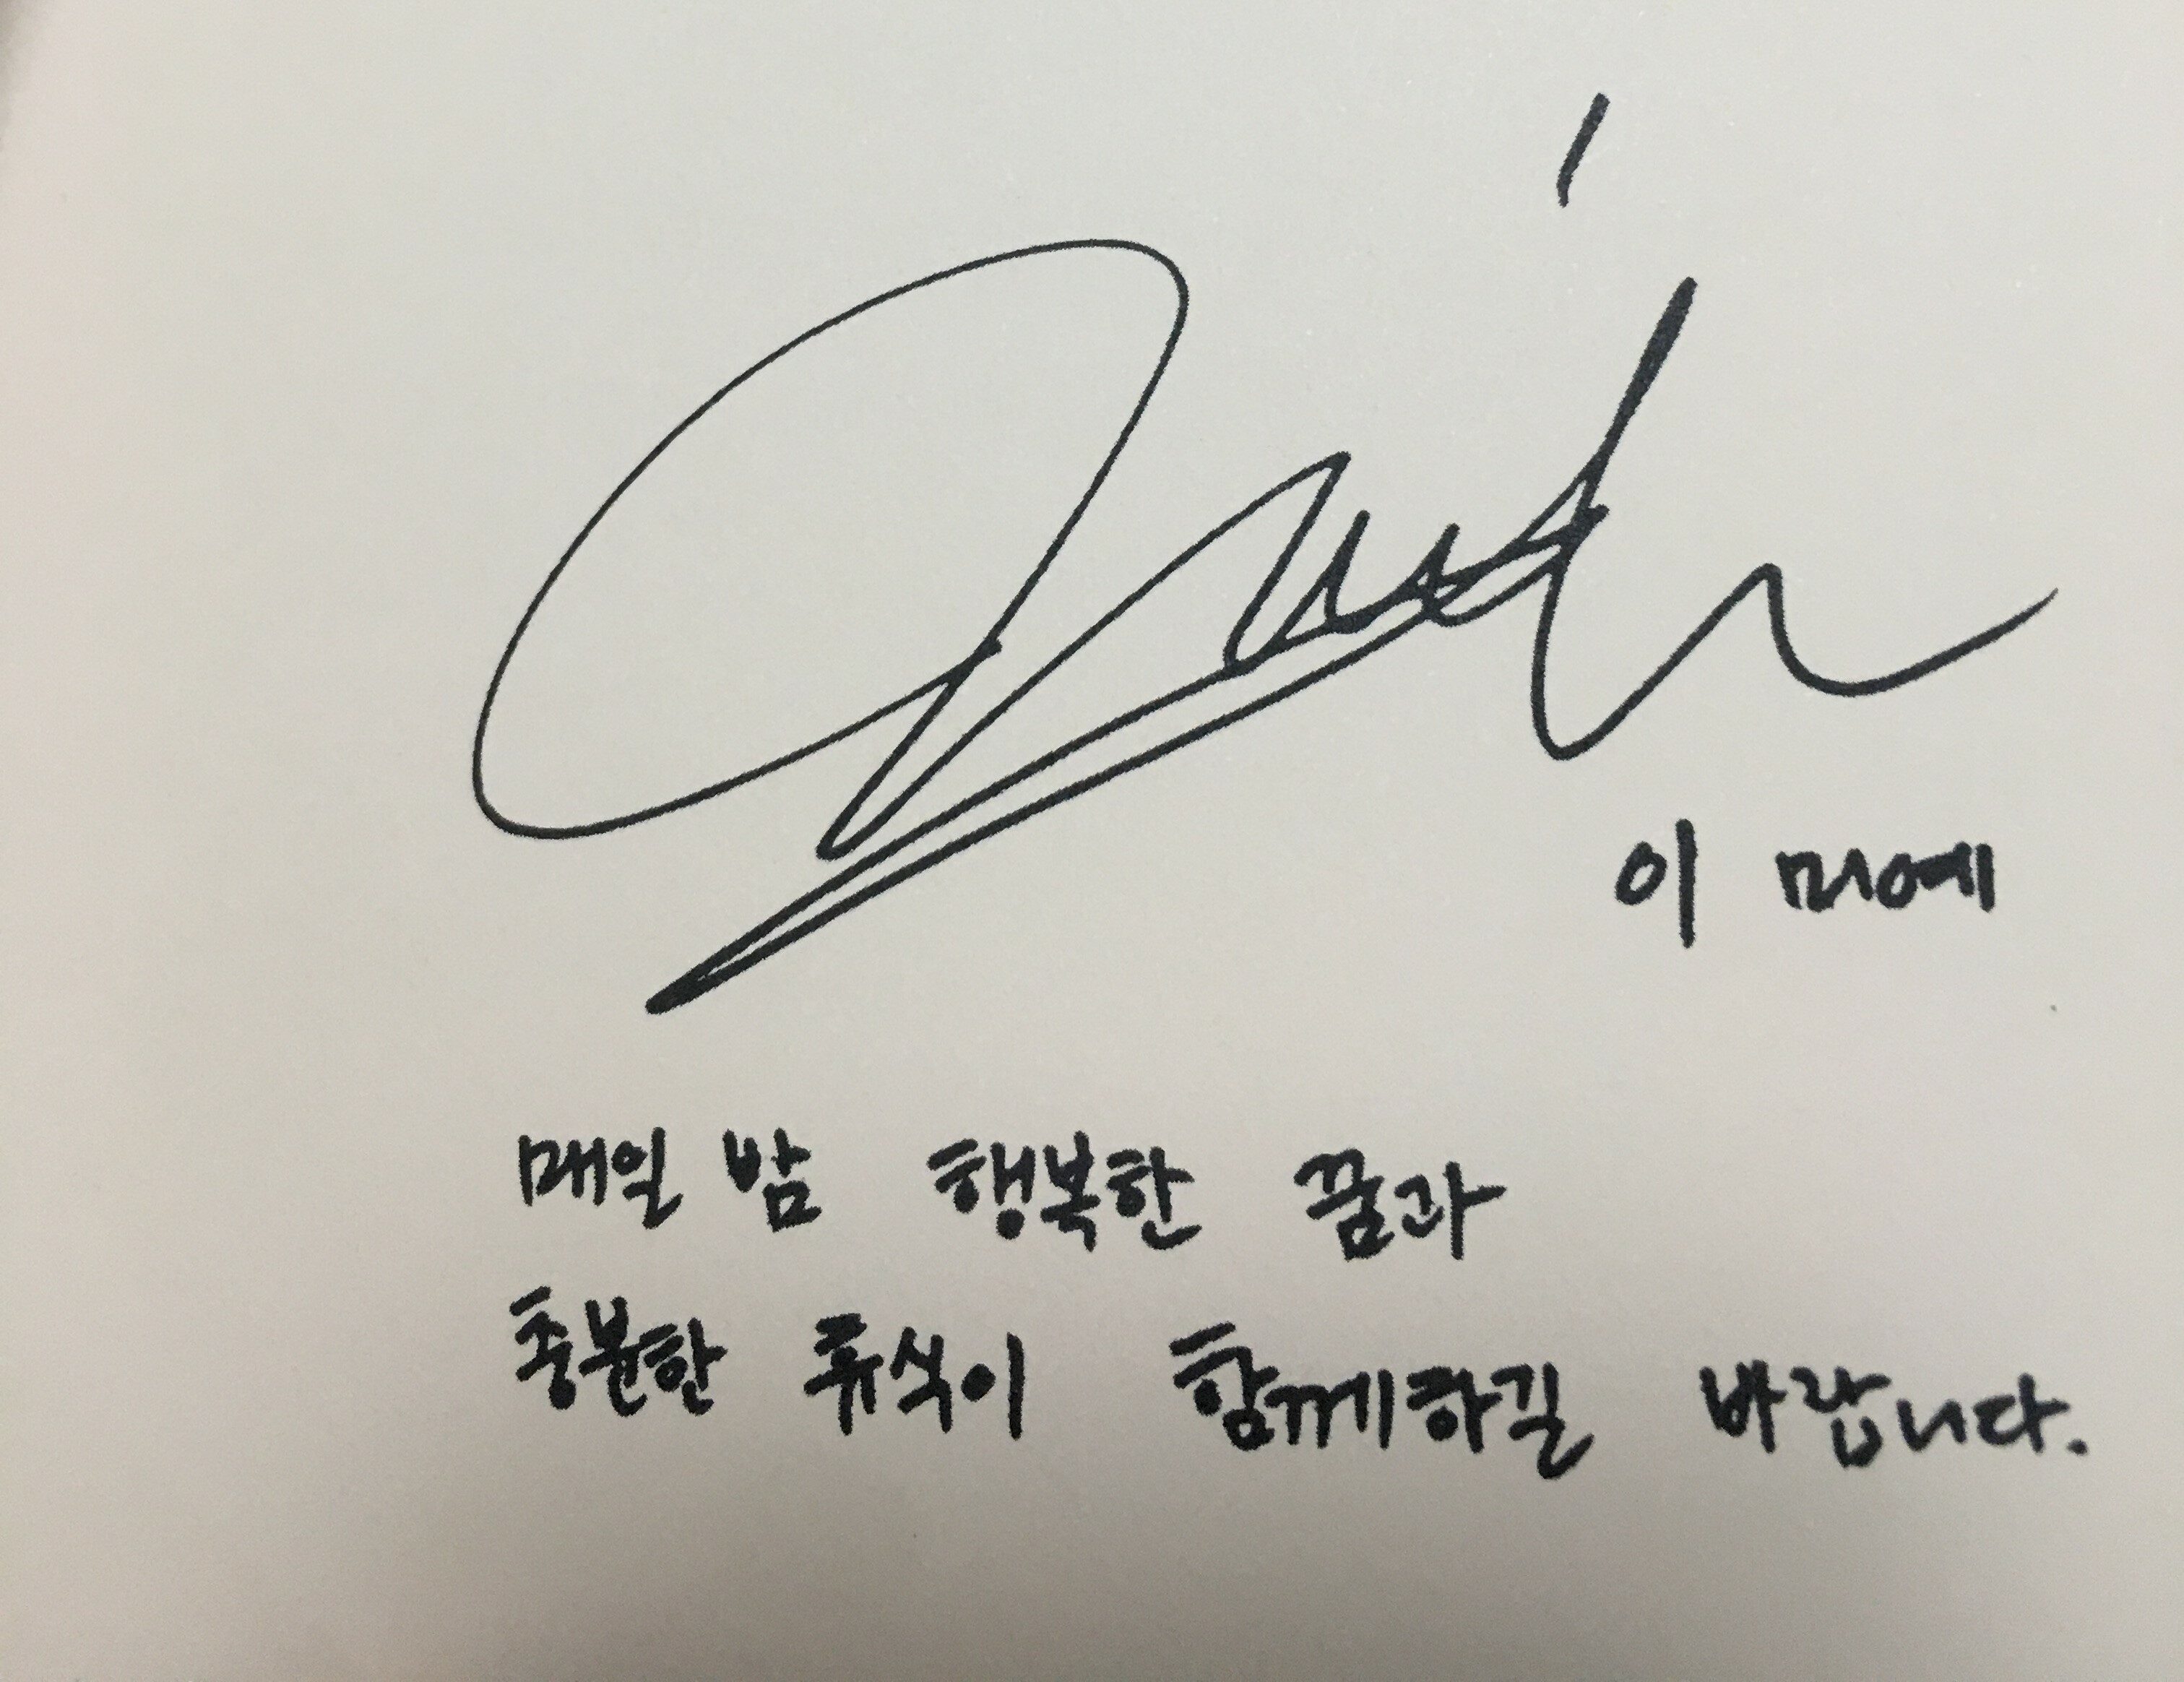 이 미예
매일 밤 행복한 꿈과
충분한 휴식이 함께하길 바랍니다.